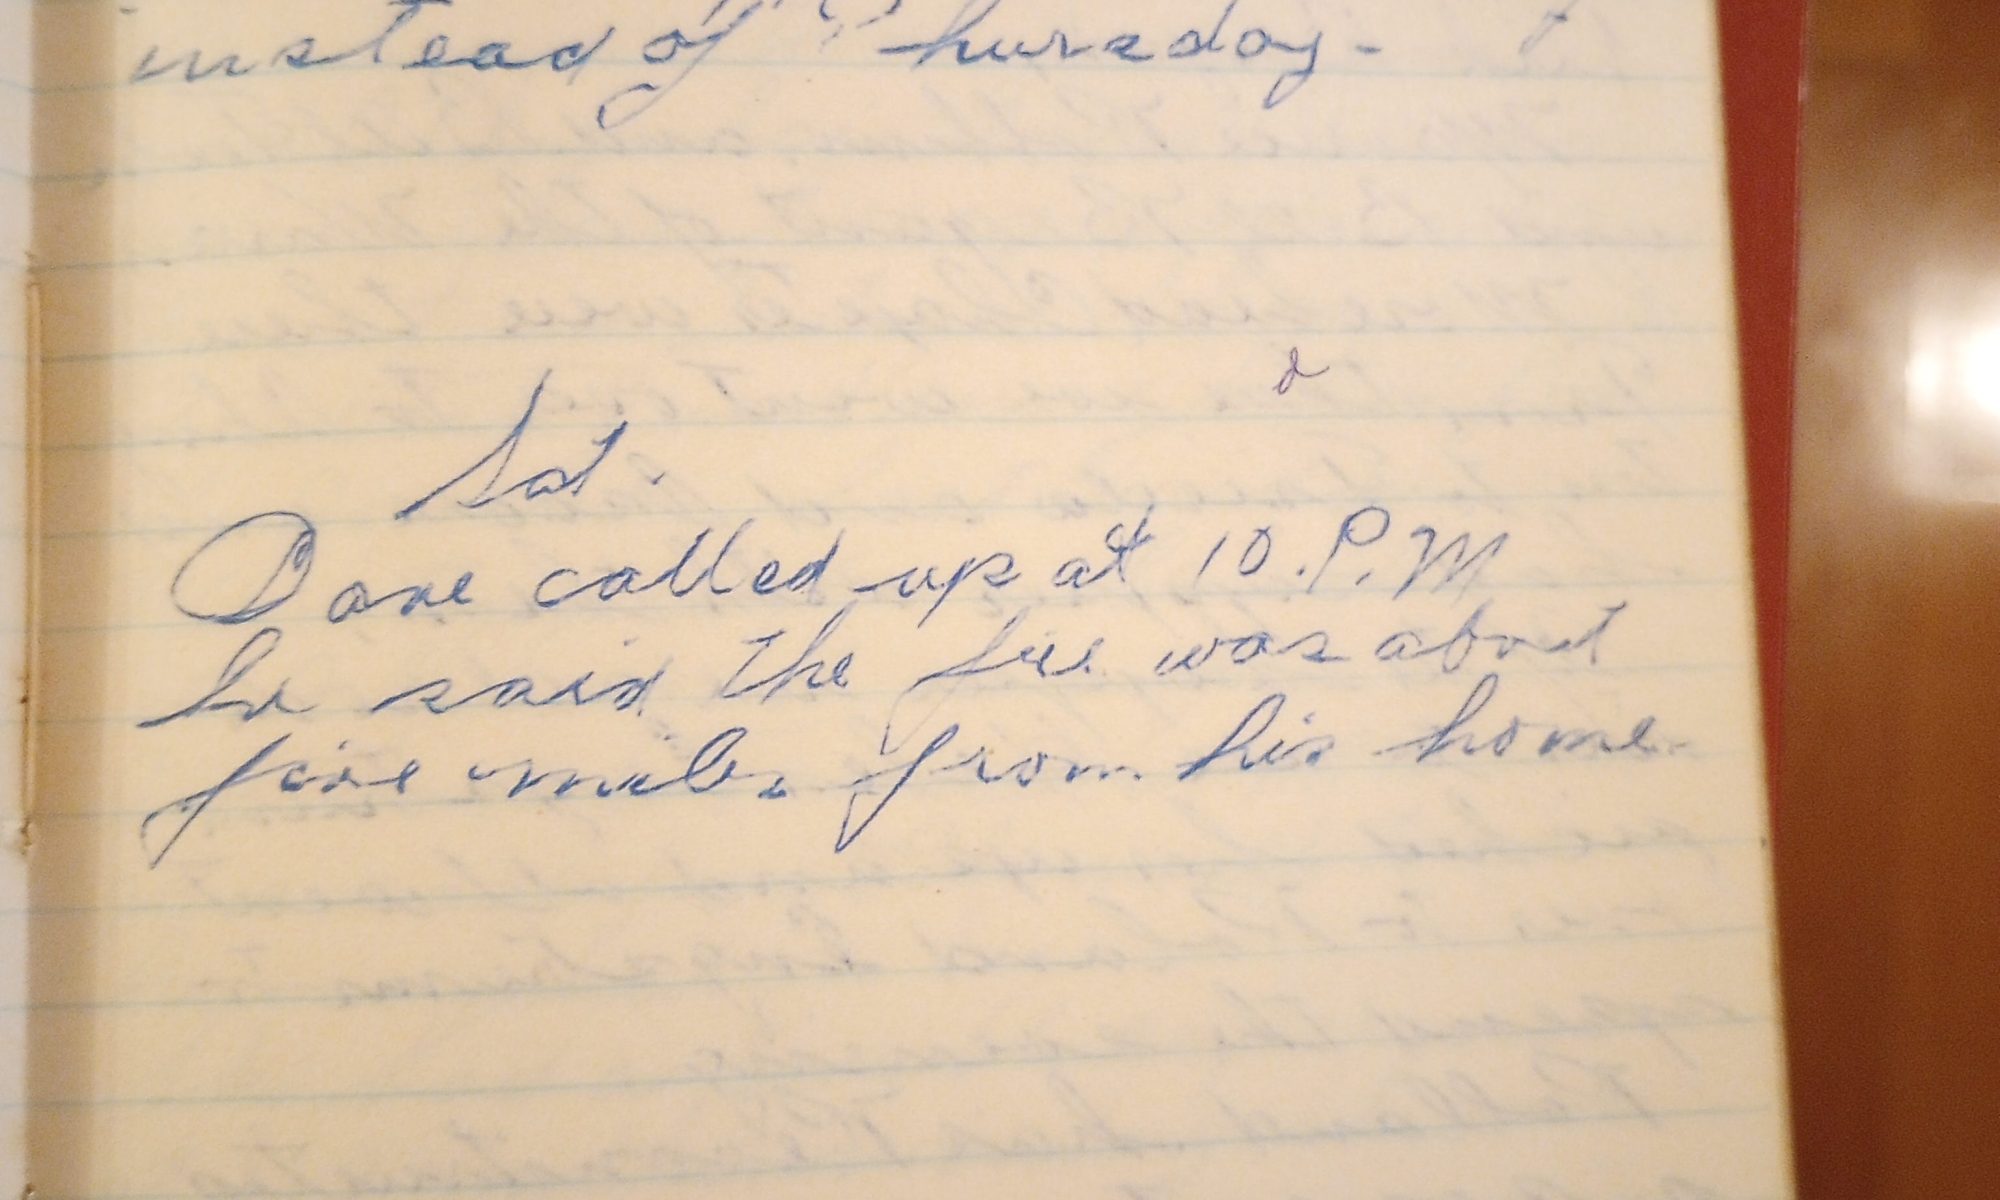 instead of Thursday.
d
Sat.
Dave called up at 10.P.M
he said the fire was about
five miles from his home.